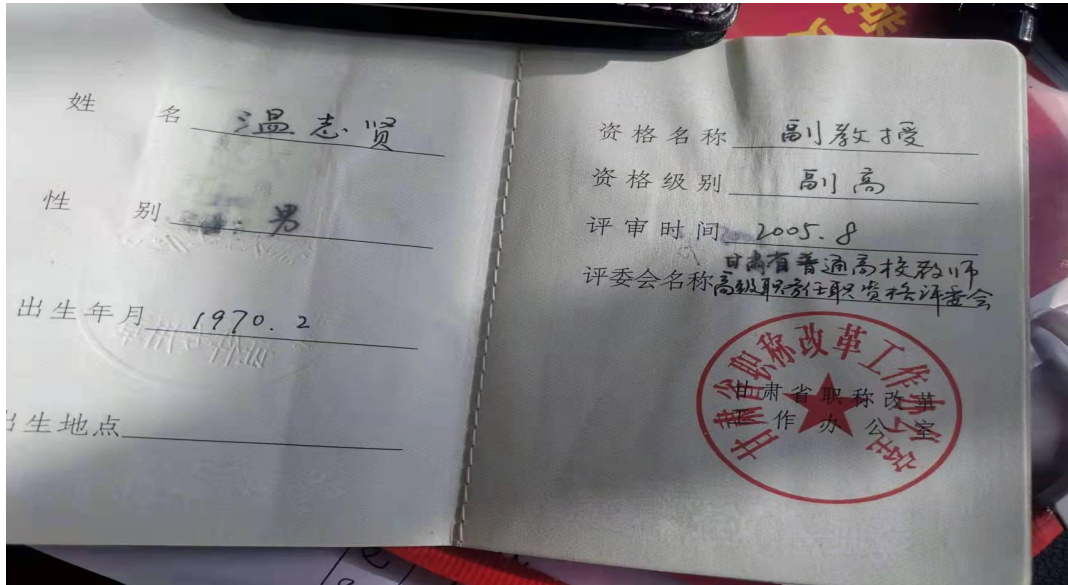 姓名 温志贤
性别 男
出生年月 1970.2
出生地点
资格名称 副教授
资格级别 副高
评审时间 2005.8
评委会名称 甘肃省普通高校教师
高级职务任职资格评委会
甘肃省职称改革工作办公室
甘肃省职称改革
工作办公室